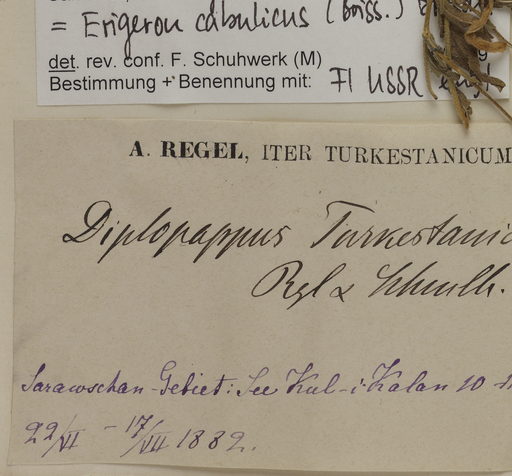 = Erigeron cabulicus (Boiss.)
det. rev. conf. F. Schuhwerk (M)
Bestimmung + Benennung mit: Fl USSR (engl
A. REGEL, ITER TURKESTANICUM
Diplopappus Turkestanic
Rgl & Schmlh.
Sarawschan-Gebiet: See Kul-i-Kalan 10
22/VI - 17/VII 1882.